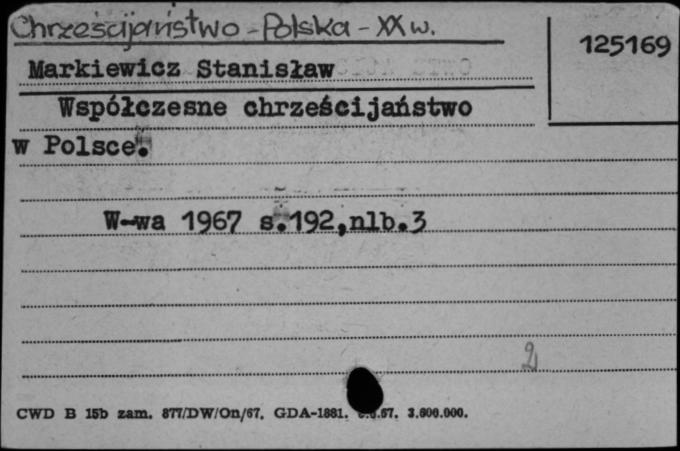 Chrześcijaństwo - Polska - XX w.
125169
Markiewicz Stanisław
Współczesne chrześcijaństwo
w Polsce.
W-wa 1967 s.192,nlb.3
2
CWD B 15b zam. 877/DW/On/67. GDA-1881. 67. 3.600.000.